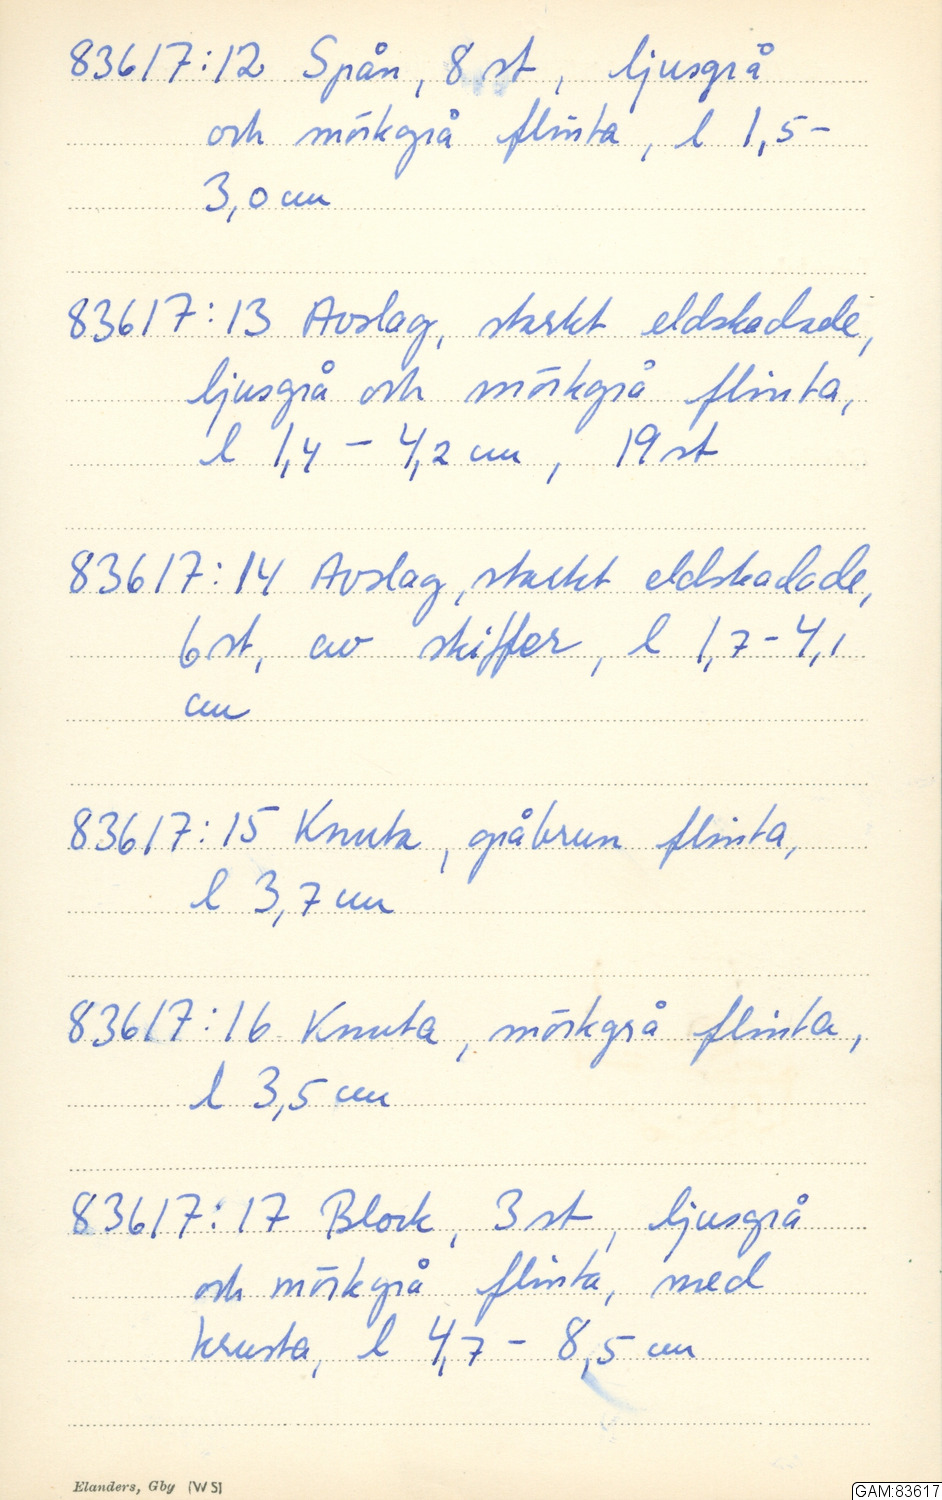 83617:12 Spån, 8 st, ljusgrå
och mörkgrå flinta, l 1,5-
3,0 cm
83617:13 Avslag, starkt eldskadade,
ljusgrå och mörkgrå flinta,
l 1,4 - 4,2 cm, 19 st
83617:14 Avslag, starkt eldskadade,
6 st, av skiffer, l 1,7-4,1
cm
83617:15 Knuta, gråbrun flinta,
l 3,7 cm
83617:16 Knuta, mörkgrå flinta,
l 3,5 cm
83617:17 Block, 3 st, ljusgrå
och mörkgrå flinta, med
krusta, l 4,7 - 8,5 cm
Elanders, Gby (W5)
GAM:83617